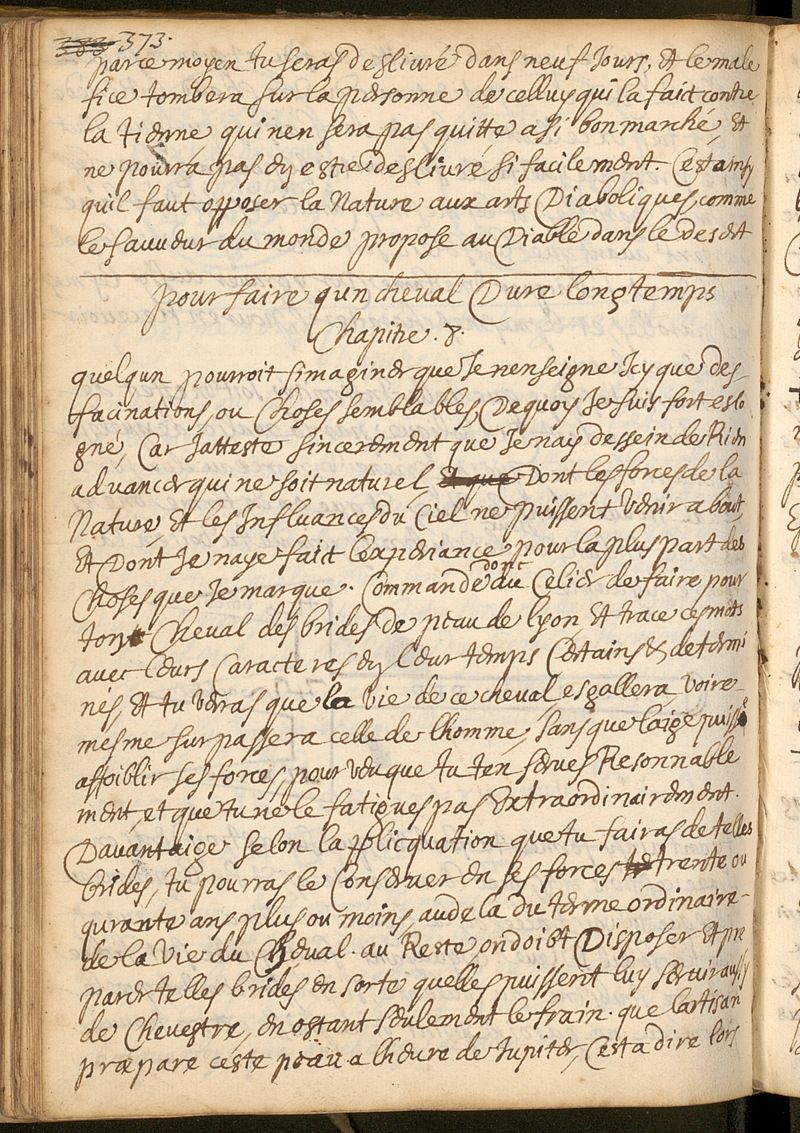 383 373.
par ce moyen tu seras deslivré dans neuf Jours, et le male
fice tombera sur la personne de celluy qui la faict contre
la tienne, qui nen sera pas quitte a si bon marché, et
ne pourra pas en estre deslivré si facilement. Cest ainsy
quil faut opposer la Nature aux arts Diaboliques, comme
le sauveur du monde propose au Diable dans le desert
pour faire qun cheval Dure longtemps
Chapitre .8.
quelqun pourroit simaginer que Je nenseigne Icy que des
facinations, ou Choses semblables, Dequoy Je suis fort eslo
gné, Car Jatteste sincerement que Je nay dessein de Rien
advancer qui ne soit naturel, et que Dont les forces de la
Nature, et les Influances du Ciel ne puissent venir a bout,
et Dont Je naye faict lexperiance pour la plus part des
Choses que Je marque. Commande donc au Celier de faire pour
ton Cheval des brides de peau de lyon, et trace ces mots
avec leurs Caracteres en leur temps Certains et determi
nés, et tu verras que la vie de ce cheval esgallera, voire
mesme surpassera celle de lhomme, sans que laige puisse
affoiblir ses forces, pourveu que tu ten serves Resonnable
ment, et que tu ne le fatigues pas Extraordinairement.
Davantaige selon lapplicquation que tu fairas de telles
brides, tu pourras le Conserver en ses forces trente ou
qurante ans plus ou moins, au dela du terme ordinaire
de la vie du Cheval. au Reste on doibt Disposer et pre
parer telles brides en sorte quelles puissent luy servir aussy
de Chevestre, en ostant seulement le frain. que lartisan
præpare ceste peau a lheure de Jupiter, Cest a dire lors